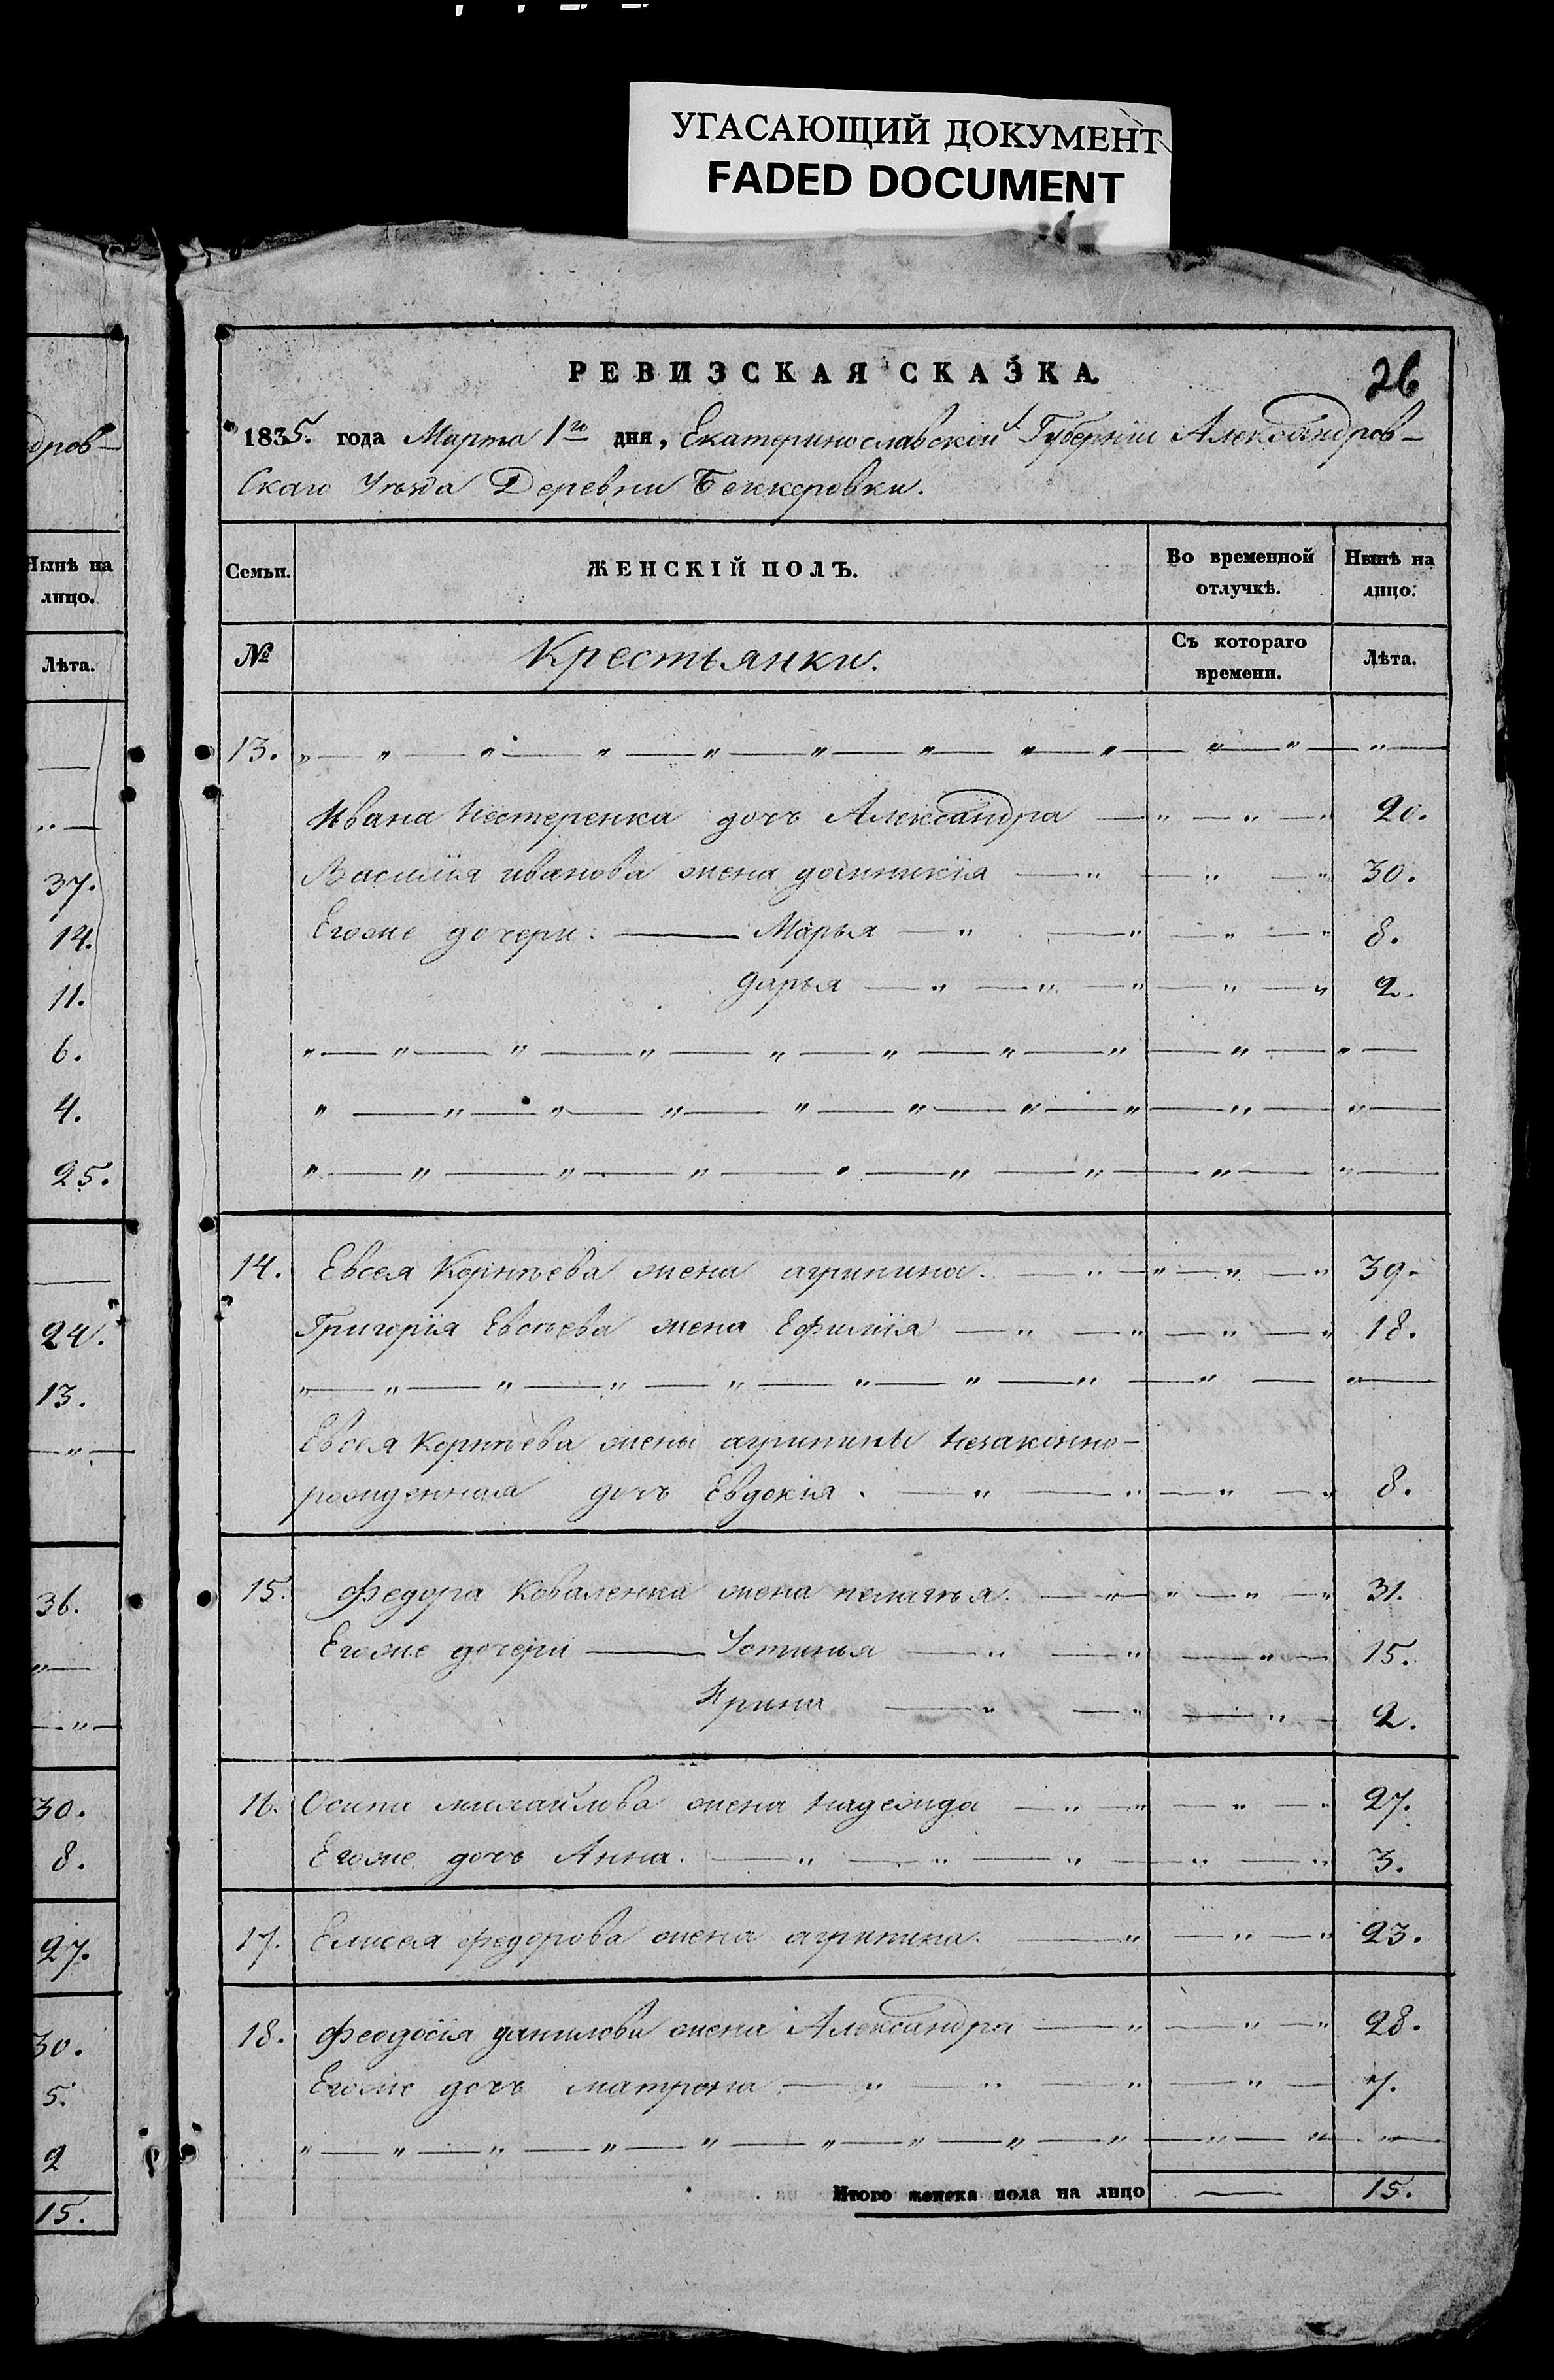 УГАСАЮЩИЙ ДОКУМЕНТ
FADED DOCUMENT
дров-
Нынѣ на
лицо.
Лѣта.
—
„ —
37.
14.
11.
6.
4.
25.
—
24.
13.
— „ —
36.
„ —
— „ —
30.
8.
27.
30.
5.
2
15.
РЕВИЗСКАЯ СКАЗКА.
26
1835. года Марта 1го дня, Екатеринославской Губерніи Александров-
скаго Уѣзда Деревни Беккеровки.
Семьи. ЖЕНСКІЙ ПОЛЪ. Во временной отлучкѣ. Нынѣ на лицо.
№ Крестьянки. Съ котораго времени. Лѣта.
13. „ — „ — „ — „ — „ — „ — „ — „ — „ — „ — „ — „ —
Ивана Нестеренка дочь Александра — „ — „ — „ 20.
Василія иванова жена домникія — „ — „ — „ 30.
Егоже дочери. — Марья — „ — „ — „ — „ 8.
дарья — „ — „ — „ — „ — „ 2.
„ — „ — „ — „ — „ — „ — „ — „ — „ — „ —
„ — „ — „ — „ — „ — „ — „ — „ — „ — „ —
„ — „ — „ — „ — „ — „ — „ — „ — „ —
14. Евсея Корнѣева жена агрипина. — „ — „ — „ — „ 39.
Григорія Евсѣева жена Ефимія — „ — „ — „ — „ 18.
„ — „ — „ — „ — „ — „ — „ — „ — „ — „ —
Евсея Корнѣева жены агрипины незаконно-
рожденная дочь Евдокія. — „ — „ — „ — „ 8.
15. Федора Коваленка жена пелагѣя. — „ — „ — „ — „ 31.
Егоже дочери — Устинья — „ — „ — „ — 15.
Ирина — „ — „ — „ — 2.
16. Осипа михайлова жена надежда — „ — „ — „ — „ 27.
Егоже дочь Анна. — „ — „ — „ — „ — „ 3.
17. Елисея федорова жена агрипина. — „ — „ — „ 23.
18. Феодосія данилова жена Александра — „ — „ — „ 28.
Егоже дочь матрона. — „ — „ — „ — „ — 7.
„ — „ — „ — „ — „ — „ — „ — „ — „ — „ — „ — „ —
Итого женска пола на лицо — 15.